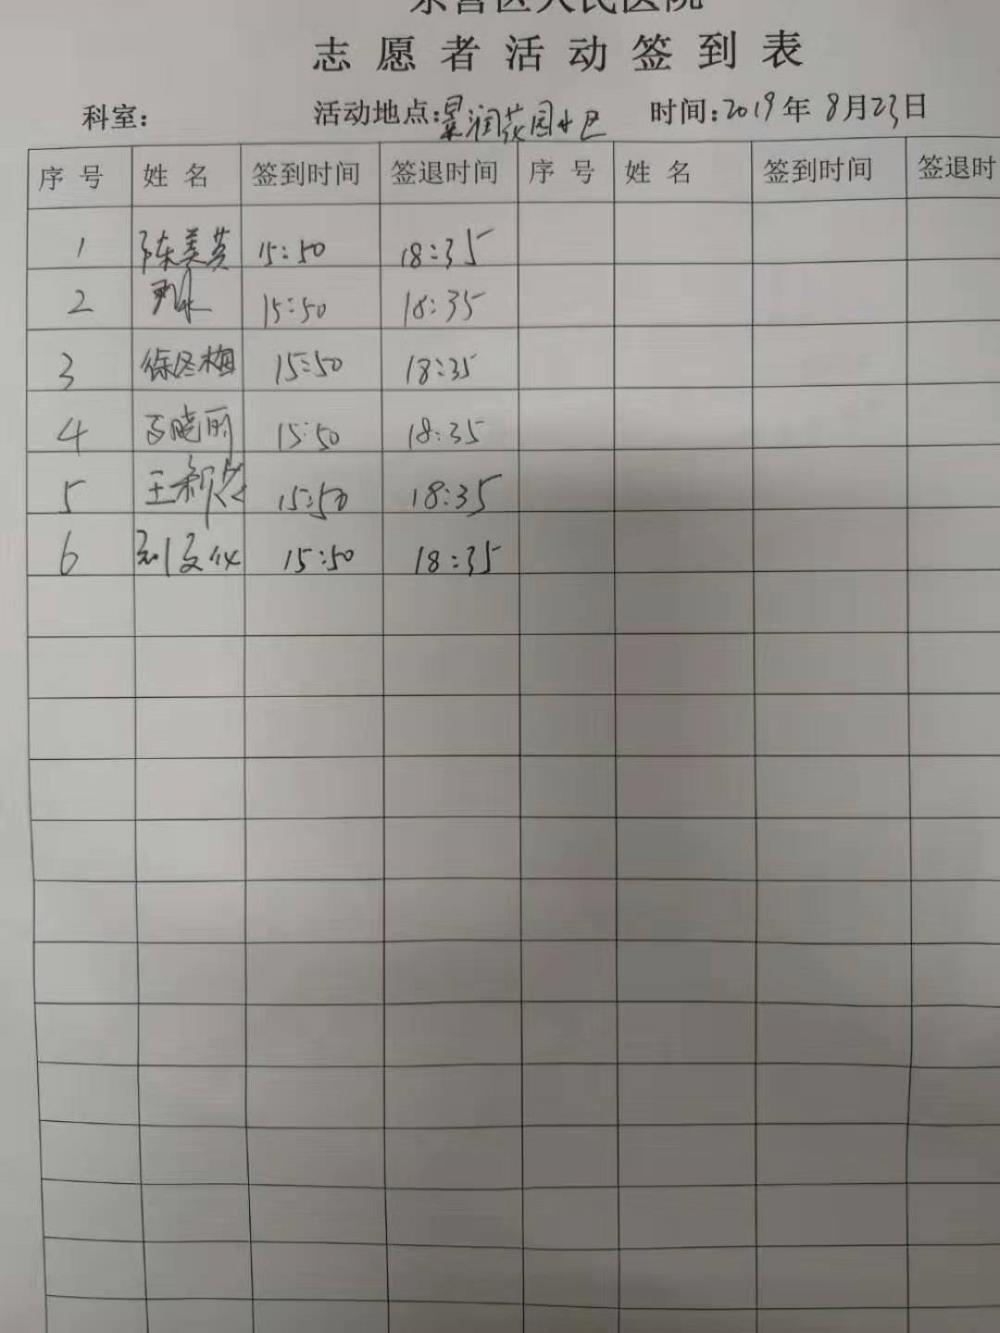 东营区人民医院
志愿者活动签到表
科室： 活动地点:景润花园小区 时间:2019年8月23日
序号 姓名 签到时间 签退时间 序号 姓名 签到时间 签退时
1 陈美英 15:50 18:35
2 15:50 18:35
3 徐冬梅 15:50 18:35
4 晓丽 15:50 18:35
5 王新 15:50 18:35
6 刘文 15:50 18:35